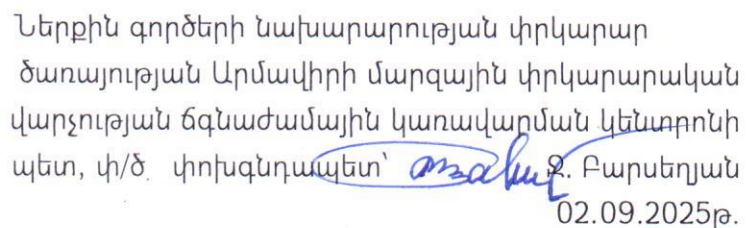 Ներքին գործերի նախարարության փրկարար
ծառայության Արմավիրի մարզային փրկարարական
վարչության ճգնաժամային կառավարման կենտրոնի
պետ, փ/ծ փոխգնդապետ՝ Զ. Բարսեղյան
02.09.2025թ.